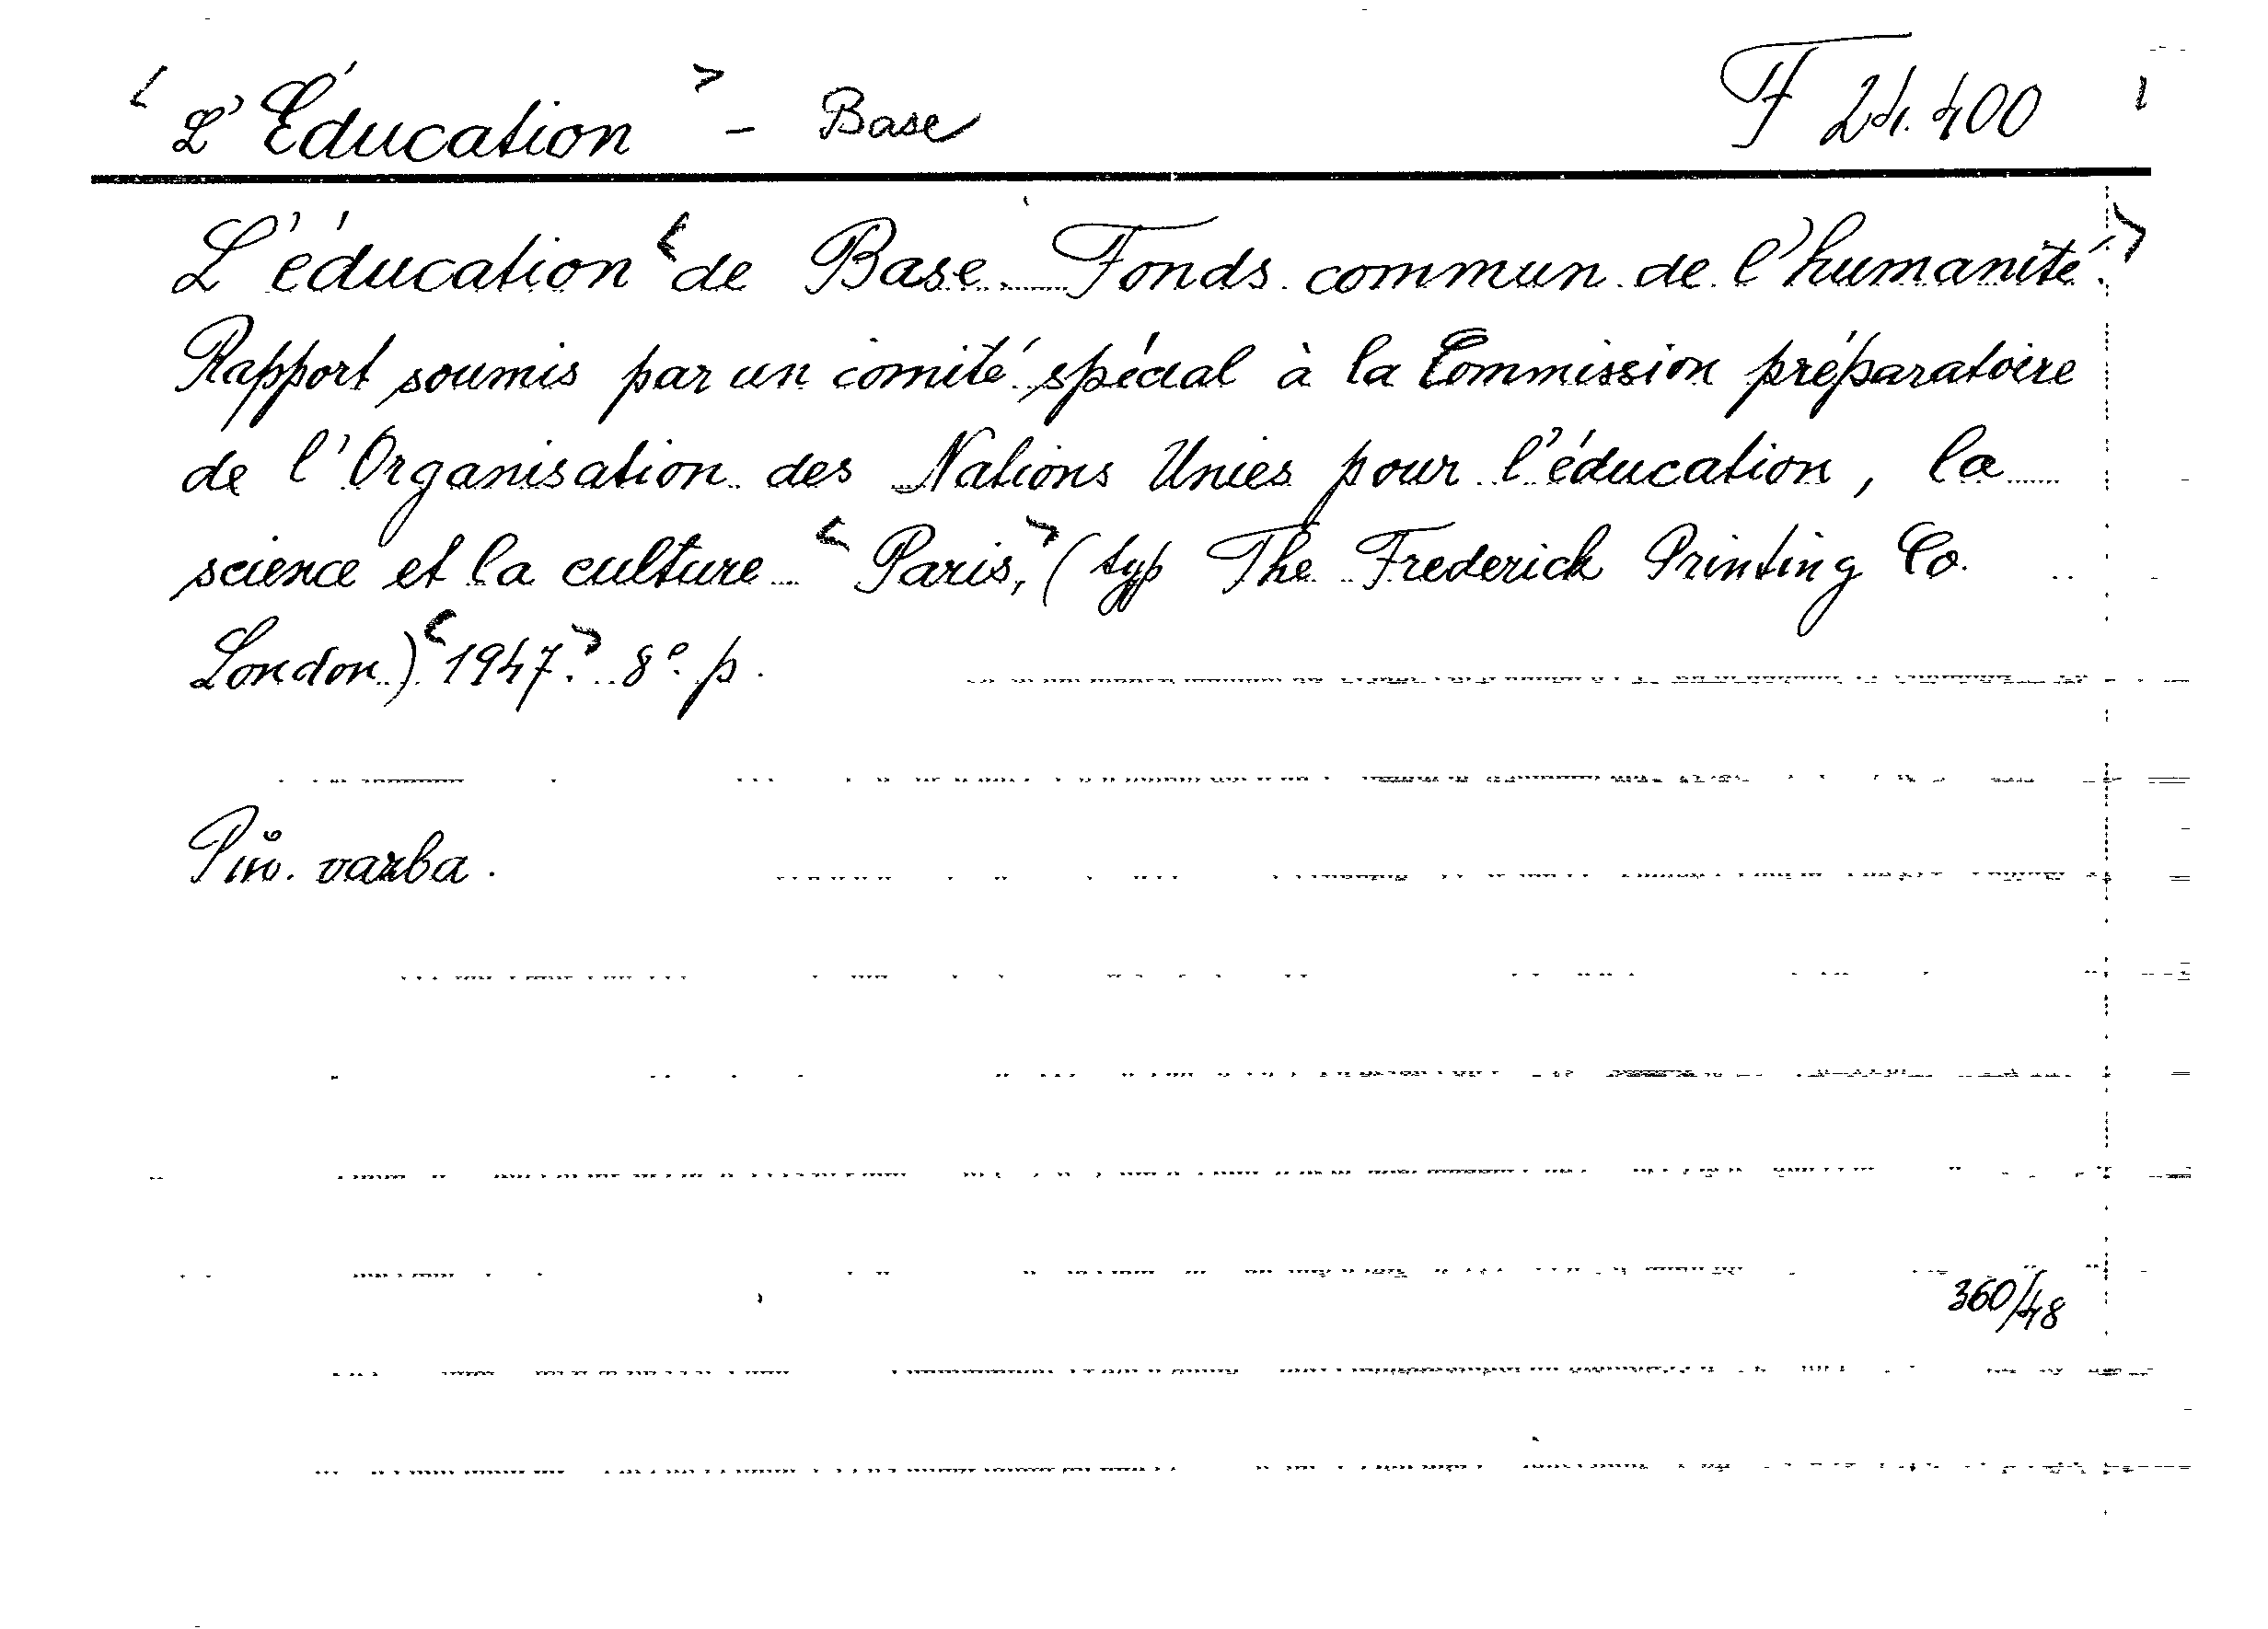 < L'Éducation > - Base F 24.400
L'éducation < de Base Fonds commun de l'humanité. >
Rapport soumis par un comité spécial à la Commission préparatoire
de l'Organisation des Nations Unies pour l'éducation, la
science et la culture < Paris, > ( typ The Frederick Printing Co.
London.) < 1947. > 8° p.
varba.
360/48